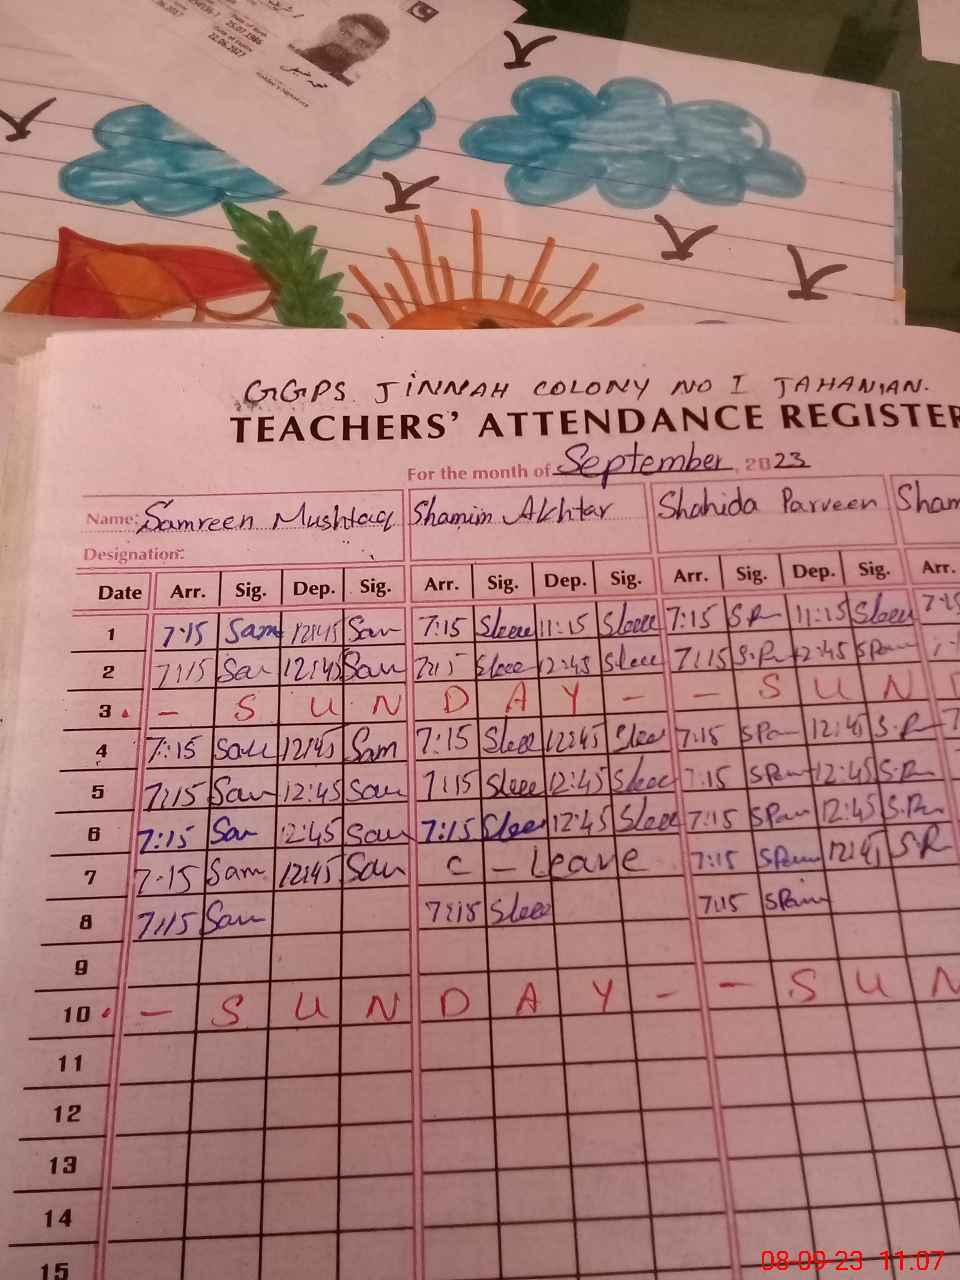 Date of Birth
25.07.1986
Date of Expiry
22.06.2027
Holder's Signature
GGPS JINNAH COLONY NO I JAHANIAN.
TEACHERS' ATTENDANCE REGISTER
For the month of September, 2023
Name: Samreen Mushtaq Shamim Akhtar Shahida Parveen Sham
Designation:
Date Arr. Sig. Dep. Sig. Arr. Sig. Dep. Sig. Arr. Sig. Dep. Sig. Arr.
1 7:15 Sam 12:45 Sam 7:15 11:15 7:15 S.P 11:15 7:15
2 7:15 Sam 12:45 Sam 7:15 12:45 7:15 S.P 12:45
3 - S U N D A Y - - S U N
4 7:15 Sam 12:45 Sam 7:15 12:45 7:15 12:45 S.P
5 7:15 Sam 12:45 Sam 7:15 12:45 7:15 12:45 S.P
6 7:15 Sam 12:45 Sam 7:15 12:45 7:15 12:45 S.P
7 7:15 Sam 12:45 Sam C - Leave 7:15 12:45 S.P
8 7:15 Sam 7:15 7:15
9
10 - S U N D A Y - - S U N
11
12
13
14
15
08-09-23 11:07